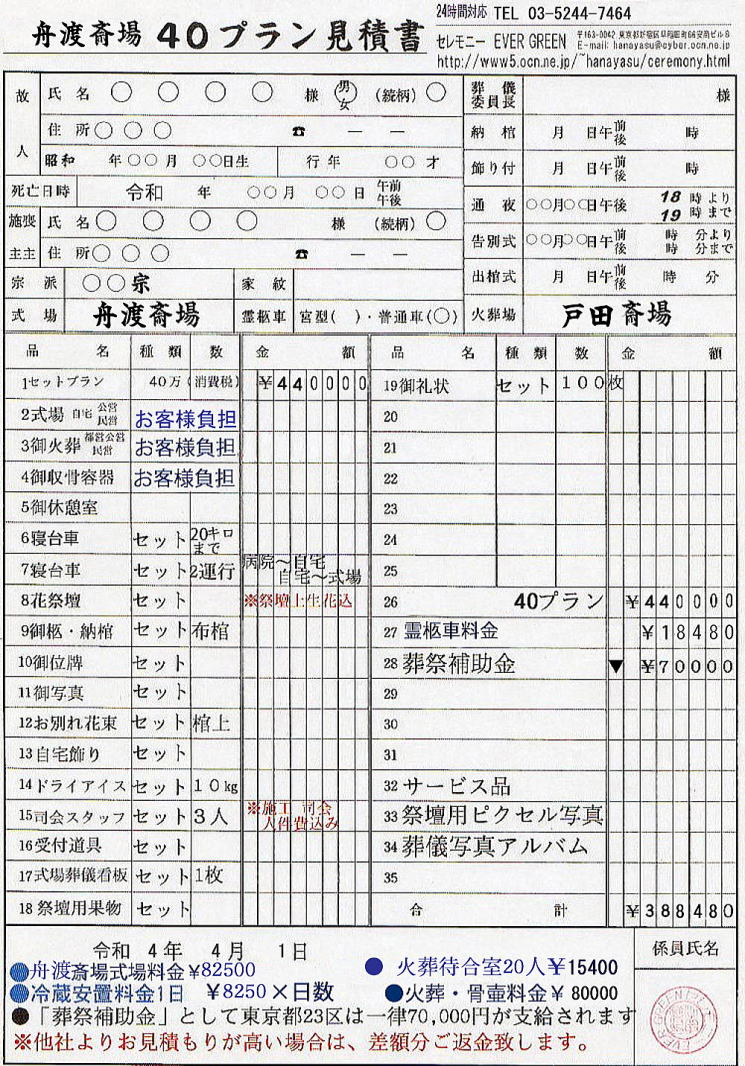 舟渡斎場 40プラン見積書
24時間対応 TEL 03-5244-7464
セレモニー EVER GREEN
〒163-0042 東京都新宿区早稲田町66安用ビル8
E-mail: hanayasu@cyber.ocn.ne.jp
http://www5.ocn.ne.jp/~hanayasu/ceremony.html
故人 氏名 ○ ○ ○ ○ 様 男女 (続柄) ○
住所 ○ ○ ○ ☎ — —
昭和 年○○月 ○○日生 行年 ○○才
死亡日時 令和 年 ○○月 ○○日 午前午後
施喪主主 氏名 ○ ○ ○ ○ 様 (続柄) ○
住所 ○ ○ ○ ☎ — —
宗派 ○○宗 家紋
式場 舟渡斎場 霊柩車 宮型( )・普通車(○)
葬儀委員長 様
納棺 月 日午前後 時
飾り付 月 日午前後 時
通夜 ○○月○○日午後 18時より 19時まで
告別式 ○○月○○日午前後 時 分より 時 分まで
出棺式 月 日午前後 時 分
火葬場 戸田斎場
品名 種類 数 金額
1セットプラン 40万(消費税) ¥440000
2式場 自宅 公営 民営 お客様負担
3御火葬 都営公営 民営 お客様負担
4御収骨容器 お客様負担
5御休憩室
6寝台車 セット 20キロまで
7寝台車 セット 2運行 病院〜自宅 自宅〜式場
8花祭壇 セット ※祭壇上生花込
9御柩・納棺 セット 布棺
10御位牌 セット
11御写真 セット
12お別れ花束 セット 棺上
13自宅飾り セット
14ドライアイス セット 10kg
15司会スタッフ セット 3人 ※施工 司会 人件費込み
16受付道具 セット
17式場葬儀看板 セット 1枚
18祭壇用果物 セット
品名 種類 数 金額
19御礼状 セット 100枚
20
21
22
23
24
25
26 40プラン ¥440000
27 霊柩車料金 ¥18480
28 葬祭補助金 ▼ ¥70000
29
30
31
32 サービス品
33 祭壇用ピクセル写真
34 葬儀写真アルバム
35
合計 ¥388480
令和 4年 4月 1日
●舟渡斎場式場料金¥82500 ●火葬待合室20人¥15400
●冷蔵安置料金1日 ¥8250×日数 ●火葬・骨壺料金¥80000
●「葬祭補助金」として東京都23区は一律70,000円が支給されます
※他社よりお見積もりが高い場合は、差額分ご返金致します。
係員氏名